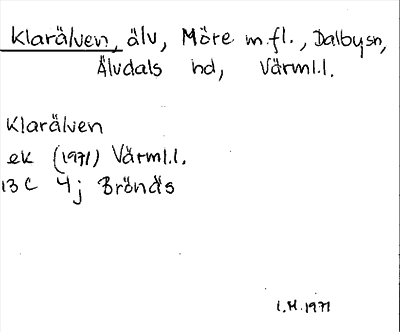 Klarälven, älv, Möre m.fl., Dalby sn,
Älvdals hd, Värml.l.
Klarälven
ek (1971) Värml.l.
13 C 4 j Brönäs
I.H. 1971